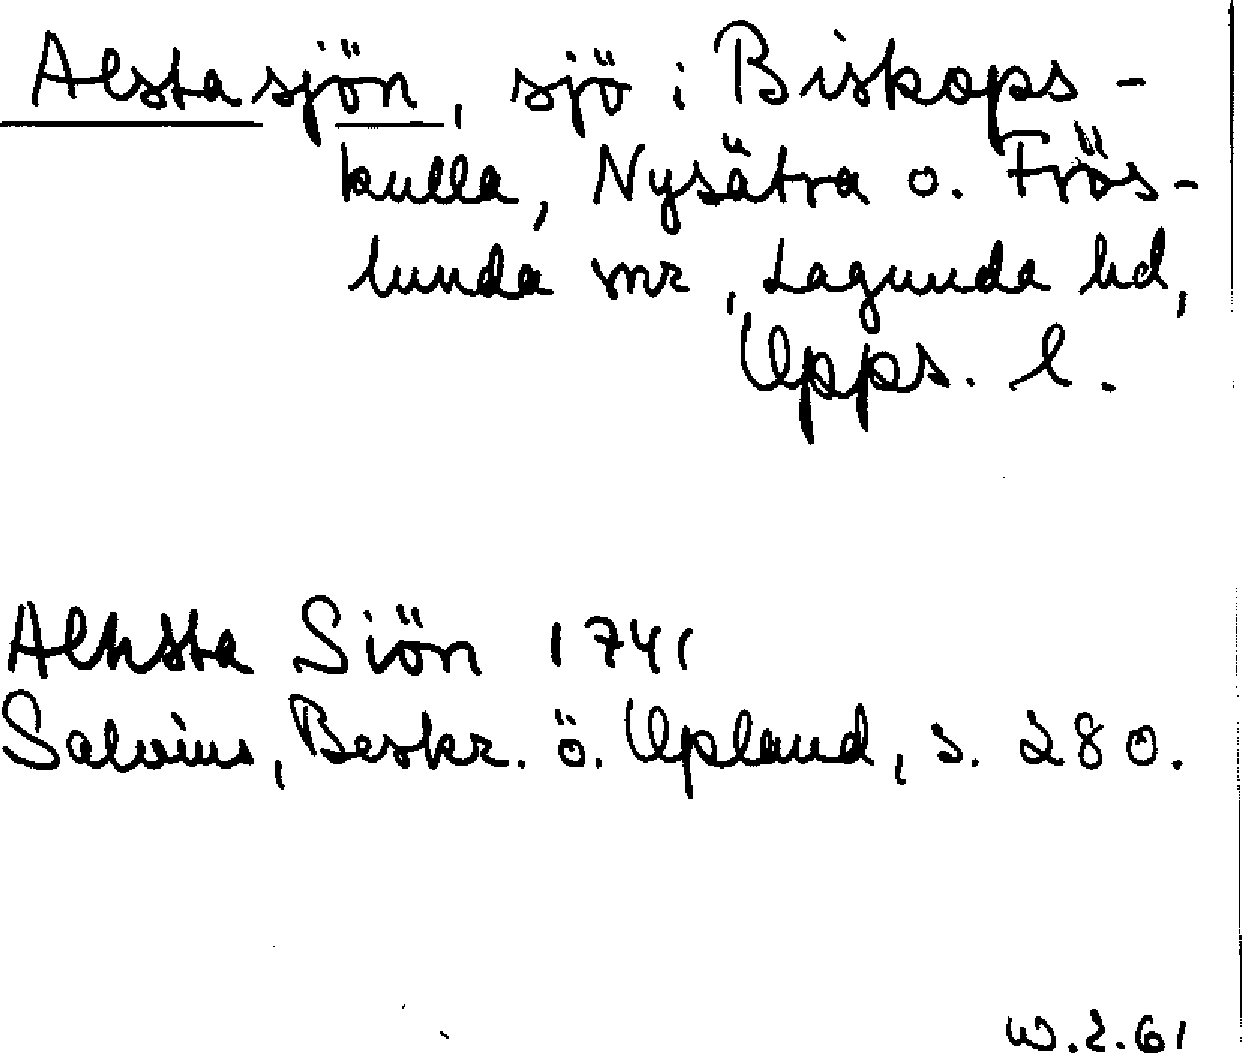 Alstasjön, sjö i Biskops-
kulla, Nysätra o. Frös-
lunda snr, Lagunda hd,
Upps. l.
Alhsta Siön 1741
Salvius, Beskr. ö. Upland, s. 280.
W.2.61